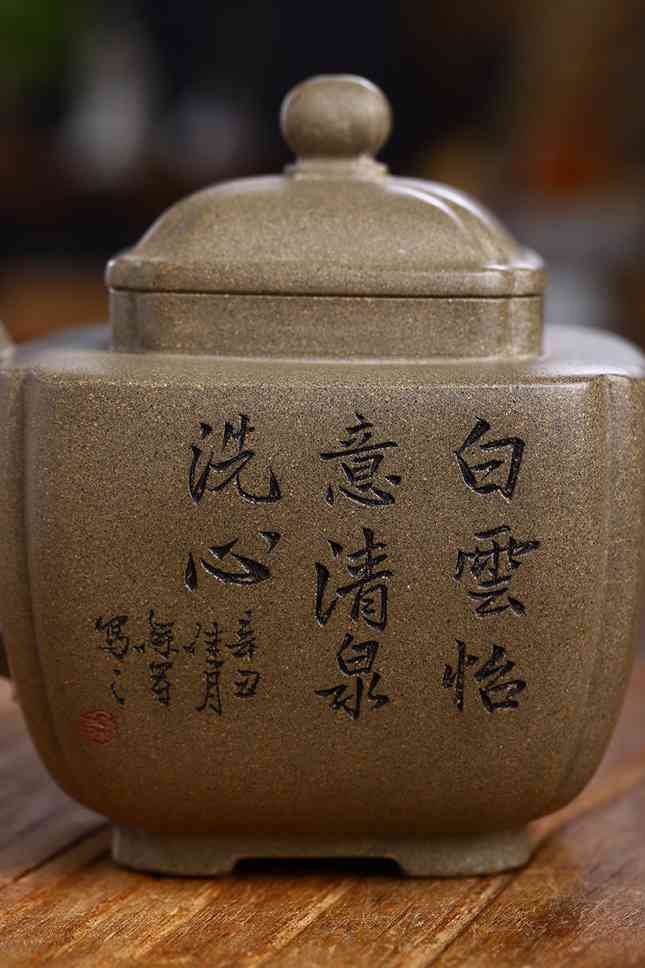 白雲怡
意清泉
洗心
辛丑
佳月
寫之